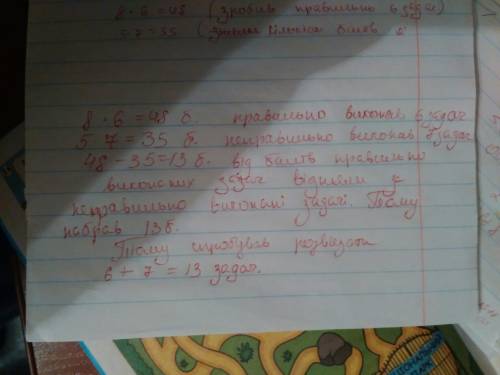 8 · 6 = 48 (зробив правильно 6 задач)
5 · 7 = 35
8 · 6 = 48 б. правильно виконав 6 задач
5 · 7 = 35 б. неправильно виконав задач
48 - 35 = 13 б. від балів правильно
виконаних задач відняли 7
неправильно виконані задачі. Тому
набрав 13 б.
Тому спробував розвязати
6 + 7 = 13 задач.